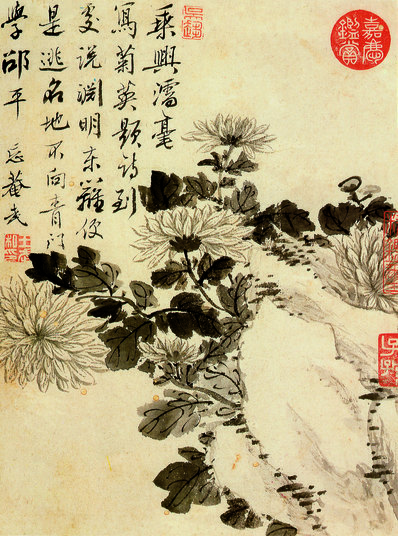 乘興濡毫
寫菊英題詩到
處說淵明東籬便
是逃名地不向青門
學邵平 忘菴武
嘉慶鑑賞